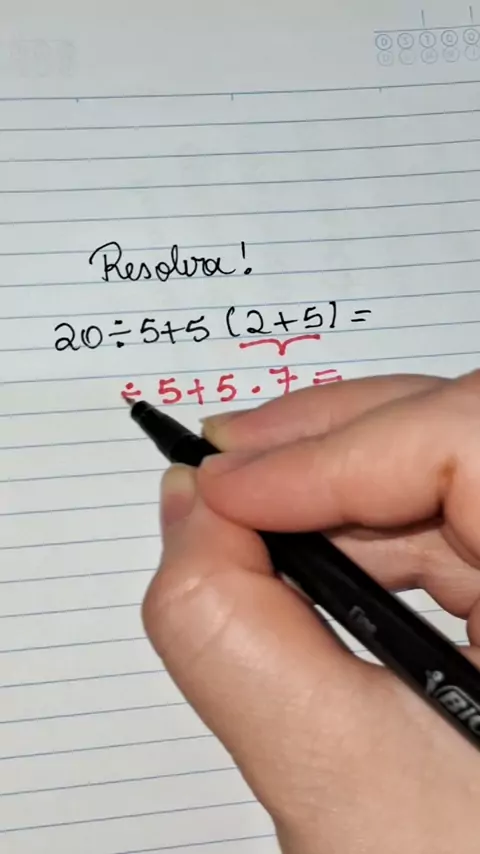 Resolva!
20 ÷ 5 + 5 (2 + 5) =
÷ 5 + 5 . 7 =
BIC